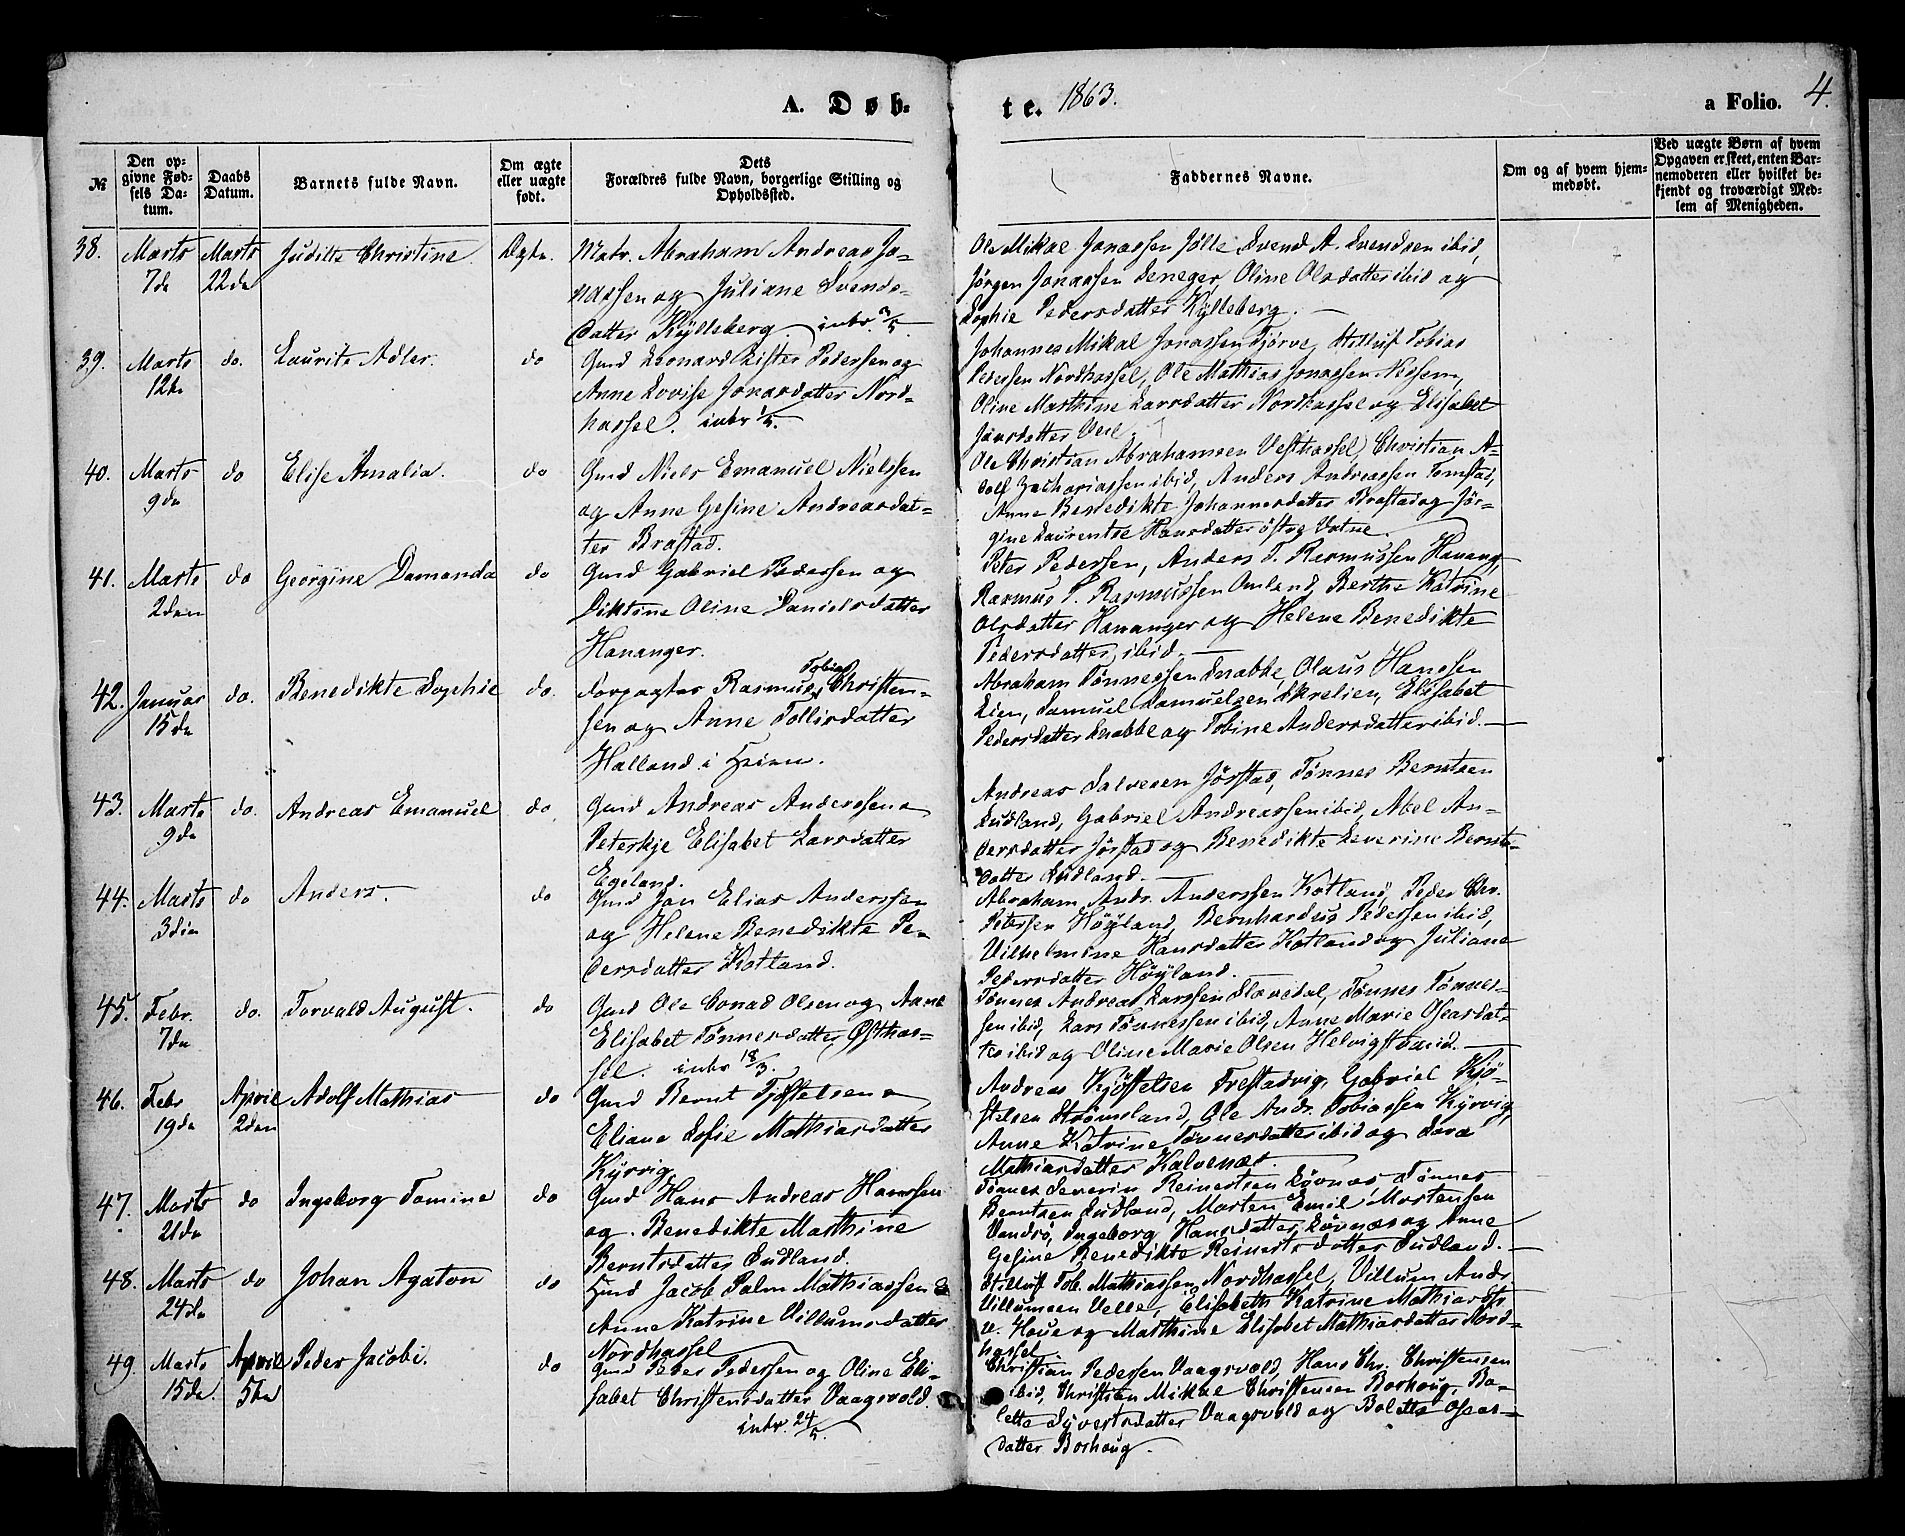 A. Døb-
te. 1863.
a Folio. 4.
№
Den opgivne Fødsels Datum.
Daabs Datum.
Barnets fulde Navn.
Om ægte eller uægte født.
Dets Forældres fulde Navn, borgerlige Stilling og Opholdssted.
Faddernes Navne.
Om og af hvem hjemmedøbt.
Ved uægte Børn af hvem Opgaven er skeet, enten Barnemoderen eller hvilket bekjendt og troværdigt Medlem af Menigheden.
38. Marts 7de Marts 22de Judithe Christine Ægte.
Matr. Abraham Andreas Jo-
nassen og Juliane Svends-
datter Kylleberg
Ole Mikal Jonassen Jølle Svend A. Svendsen ibid,
Jørgen Jonassen Seneger, Oline Olsdatter ibid og
Sophie Pedersdatter Kylleberg.
39. Marts 12te do. Laurits Adler. do
Gmd Leonard Lister Pedersen og
Anne Lovise Jonasdatter Nord-
hassel.
Johannes Mikal Jonassen Tjørve, Tobias
Pedersen Nordhassel, Ole Mathias Jonassen
Oline Marthine Larsdatter Nordhassel og Elisabet
40. Marts 9de do Elise Amalia. do
Gmd Niels Emanuel Nielsen
og Anne Gesine Andreasdat-
ter Brastad.
Ole Christian Abrahamsen Vesthassel, Christian A-
dolf Zachariassen ibid, Anders Andreassen Tomstad,
Anne Benedikte Johannesdatter Brastad og Jør-
gine Laurentse Hansdatter østre Vatne.
41. Marts 2den do Georgine Damanda do
Gmd Gabriel Pedersen og
Diktine Oline Danielsdatter
Hananger.
Peter Pedersen, Anders T. Rasmussen Hanang,
Rasmus P. Rasmussen Omland, Berthe Katrine
Olsdatter Hananger og Helene Benedikte
Pedersdatter, ibid.
42. Januar 15de do. Benedikte Sophie do.
Forpagter Rasmus Tobias Christen-
sen og Anne Tollisdatter
Halland i
Abraham Tønnessen Snabbe, Olaus Hanssen
Lien, Samuel Samuelsen Skrelien, Elisabet
Pedersdatter Snabbe og Tobine Andersdatter ibid.
43. Marts 9de do. Andreas Emanuel do
Gmd Andreas Anderssen
Peterkje Elisabet Larsdatter
Egeland.
Andreas Salvesen Jørstad, Tønnes Berntsen
Sudland, Gabriel Andreassen ibid, Abel An-
dersdatter Jørstad og Benedikte Severine Bernts-
datter Sudland.
44. Marts 3die do Anders. do
Gmd Jan Elias Anderssen
og Helene Benedikte Pe-
dersdatter Kotland.
Abraham Andr. Anderssen Kotland, Peder Chr.
Petersen Høyland, Bernhardus Pedersen ibid,
Vilhelmine Hansdatter Kotland og Juliane
Pedersdatter Høyland.
45. Febr. 7de do. Torvald August. do
Gmd Ole Conrad Olsen og Anne
Elisabet Tønnesdatter Østhas-
sel. intr 18/3.
Tønnes Andreas Larssen Slævdal, Tønnes Tønnes-
sen ibid, Lars Tønnessen ibid, Anne Marie Osearsdat-
ter ibid og Oline Marie Olsen Helvigstrand.
46. Febr 19de April 2den Adolf Mathias do
Gmd Bernt Kjøstelsen
Eliane Sofie Mathiasdatter
Kyrvig
Andreas Kjøstelsen Frestadvig, Gabriel Kjø-
stelsen Strømsland, Ole Andr. Tobiassen Kyrvig,
Anne Katrine Tønnesdatter ibid og Sara
Mathiasdatter Kalvenæs.
47. Marts 21de do Ingeborg Tomine do
Gmd Hans Andreas Hanssen
og Benedikte Marthine
Berntsdatter Sudland.
Tønnes Severin Reinertsen Løvnæs, Tønnes
Berntsen Sudland, Morten Emil Mortensen
Vandsø, Ingeborg Hansdatter Løvnæs og Anne
Gesine Benedikte Reinertsdatter Sudland.
48. Marts 24de do Johan Agaton do
Jacob Palm Mathiassen &
Anne Katrine Villumsdatter
Nordhassel
Tob. Mathiassen Nordhassel, Villum Andr.
Villumsen Velle, Elisabeth Katrine Mathiasdtr
v. Haue og Marthine Elisabet Mathiasdatter Nord-
hassel
49. Marts 15de April 5te Peder Jacobi. do
Gmd Peter Pedersen og Oline Eli-
sabet Christensdatter Vaagsvold.
Christian Pedersen Vaagsvold, Hans Chr. Christensen
ibid, Christian Mikkel Christensen Borhoug, Bo-
lette Syvertsdatter Vaagsvold og Bolette Osears-
datter Borhoug.